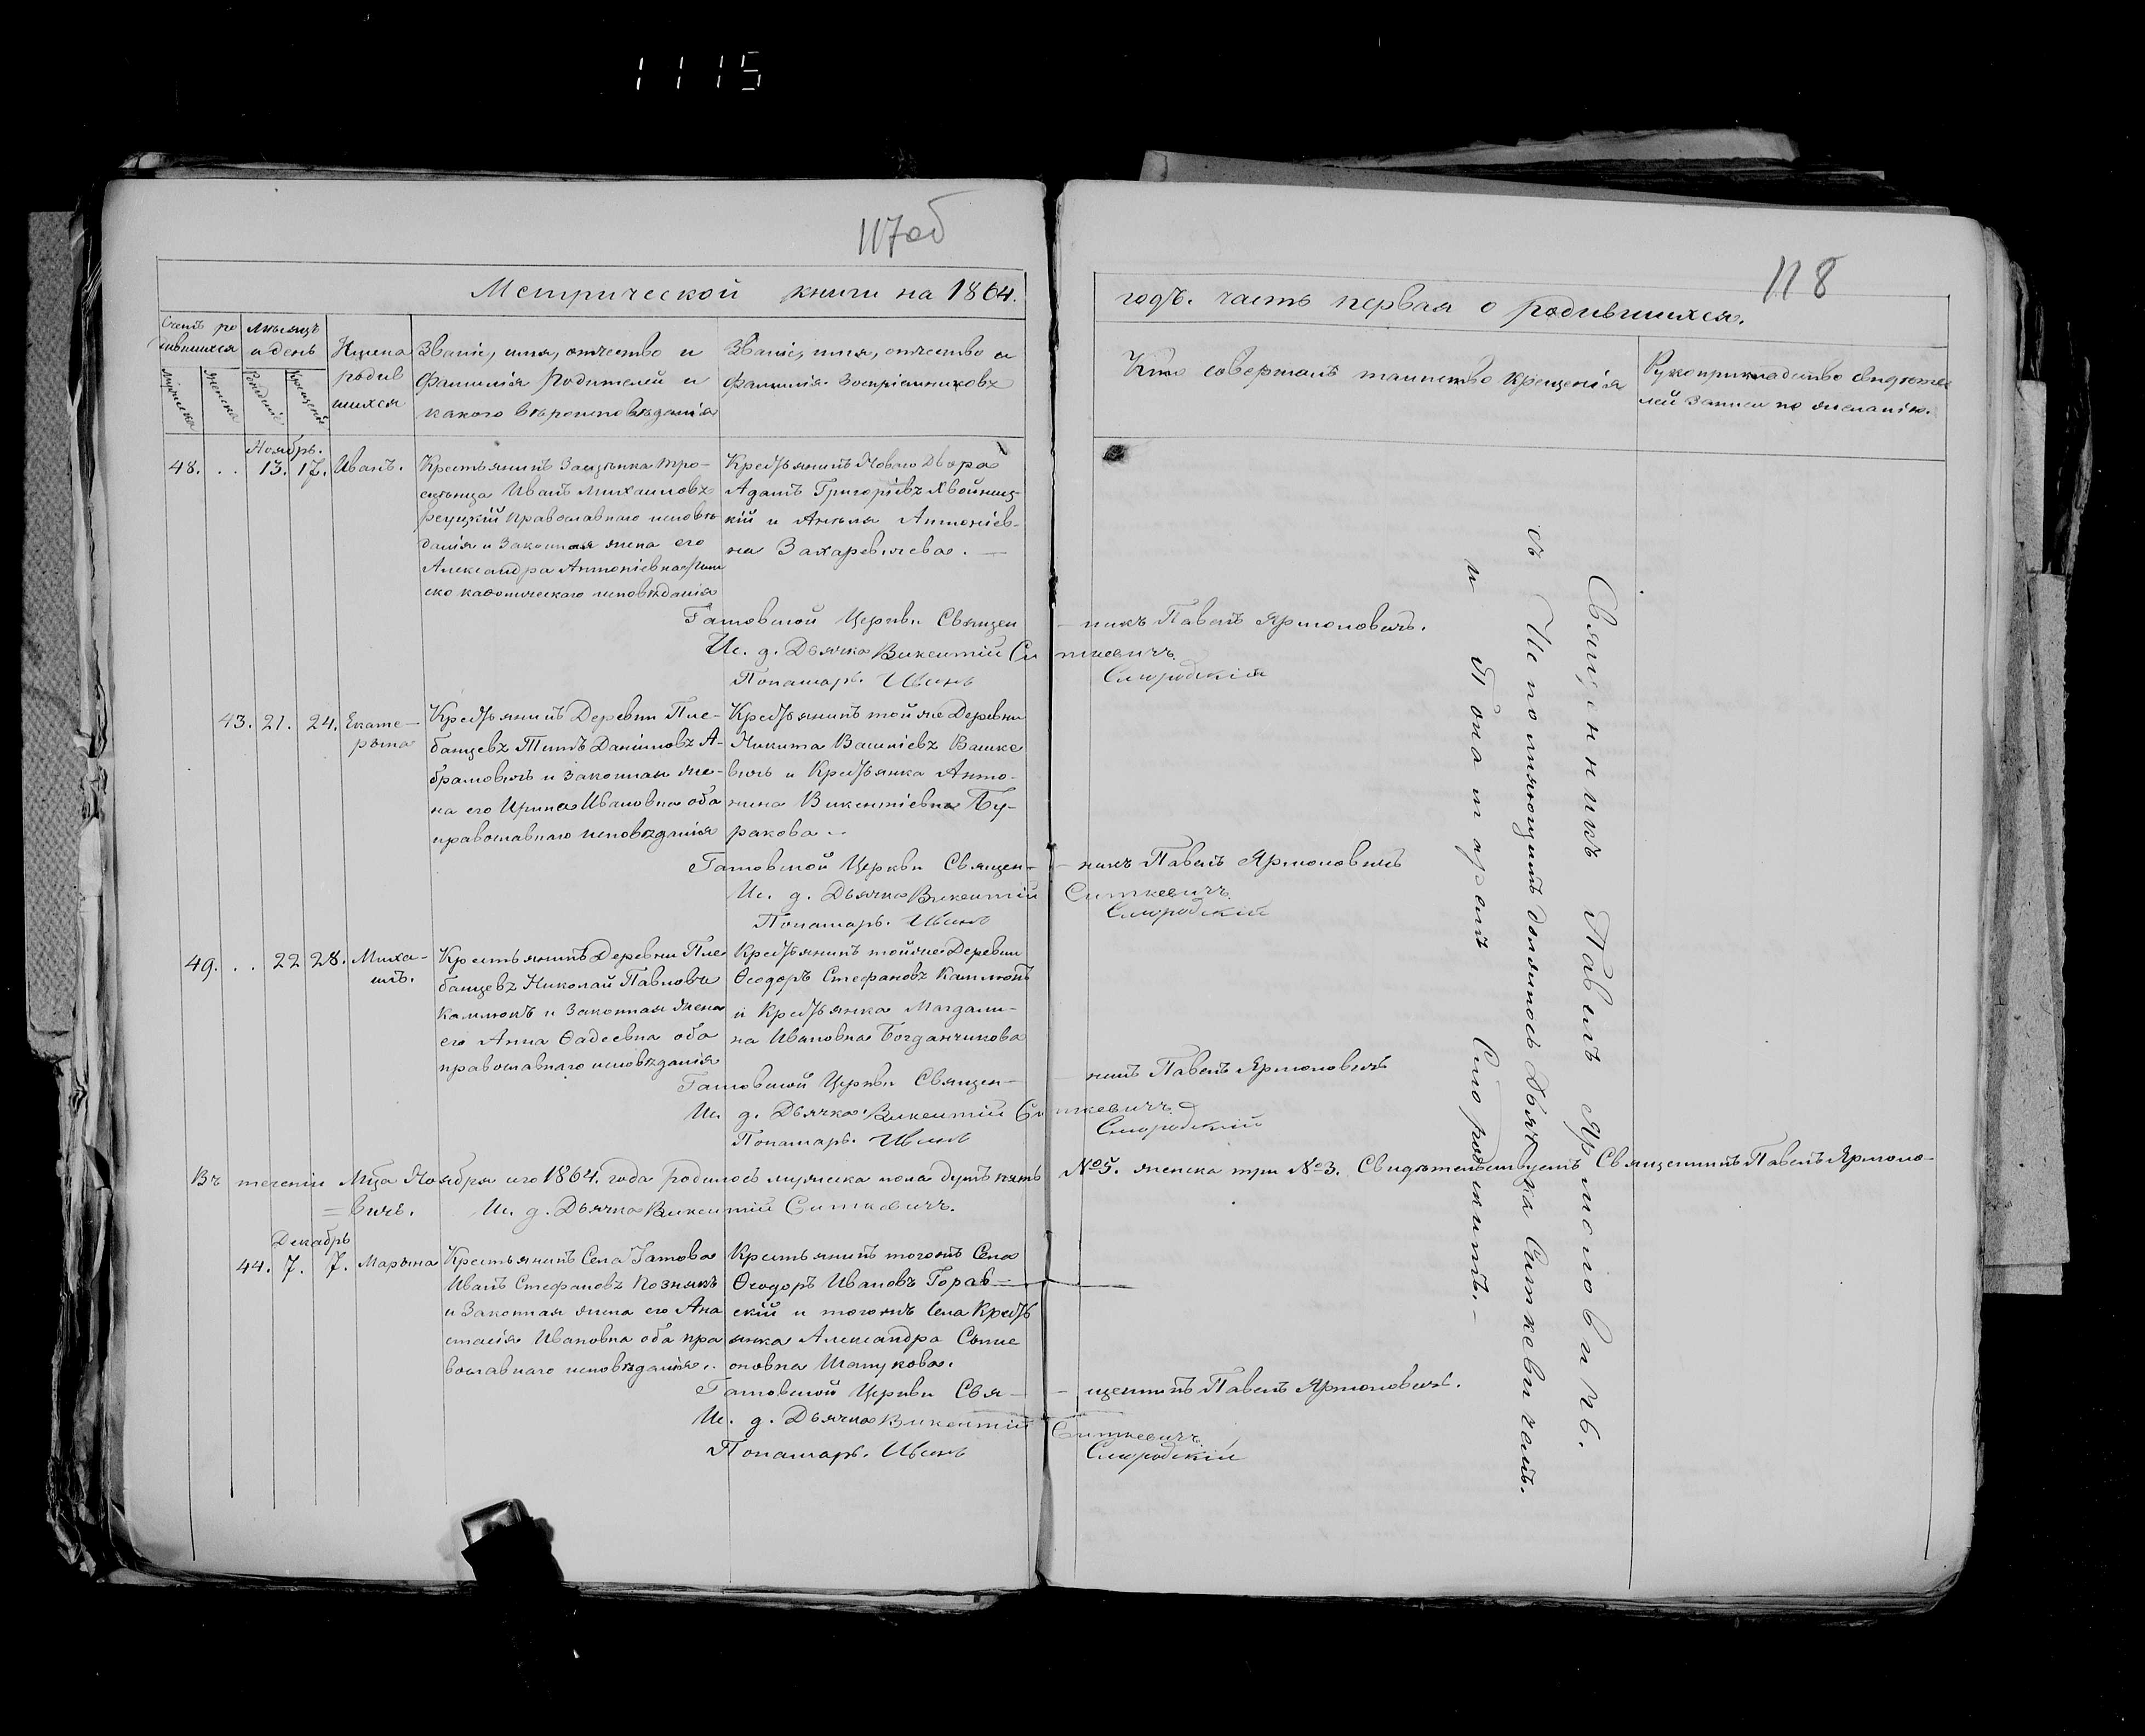 1115
117об
118
Метрической книги на 1864.
годъ. часть первая о родившихся.
Счетъ ро
дившихся
Мужеска
Женска
Мѣсяцъ
и день
Рожденіе
Крещеніе
Имена
родив
шихся
Званіе, имя, отчество и
фамилія Родителей и
какого вѣроисповѣданія
Званіе, имя, отчество и
фамилія Воспріемниковъ
Кто совершалъ таинство Крещенія
Рукоприкладство свидѣте
лей записи по желанію.
Ноябрь.
48. . . 13. 17. Иванъ.
Крестьянинъ Застѣнка Тро-
Иванъ Михаиловъ
православнаго исповѣ
данія и Законная жена его
Александра Антоніевна Рим
ско католическаго исповѣданія
Крестьянинъ Новаго Двора
Адамъ Григоріевъ Хвойниц-
кій и Анѣля Антоніев-
на Захаревичева. —
Гатовской Церкви Священ
– никъ Павелъ Ярмоловичъ.
Ис. д. Дьячка Викентій Ситкевичъ
Понамарь. Иванъ Смородскій
43. 21. 24. Екате-
рына
Крестьянинъ Деревни Пле-
банцевъ Титъ Даніиловъ А-
брамовичъ и Законная же-
на его Ирина Ивановна оба
православнаго исповѣданія
Крестьянинъ той же Деревни
Никита Вашке
вичъ и Крестьянка Анто-
нина Викентіевна Бу-
ракова. –
Гатовской Церкви Священ-
– никъ Павелъ Ярмоловичъ
Ис. д. Дьячка Викентій Ситкевичъ
Понамарь. Иванъ Смородскій
49. . . 22 28. Миха-
илъ.
Крестьянинъ Деревни Пле
банцевъ Николай Павловъ
Каллюкъ и Законная жена
его Анна Ѳадеевна оба
православнаго исповѣданія
Крестьянинъ той же Деревни
Ѳеодоръ Стефановъ Каллюкъ
и Крестьянка Магдали-
на Ивановна Богданчикова
Гатовской Церкви Священ-
никъ Павелъ Ярмоловичъ
Ис. д. Дьячка Викентій Ситкевичъ
Понамарь. Иванъ Смородскій
Въ теченіи Мца Ноября сего 1864. года родилось мужеска пола душъ пять №5. женска три №3. Свидѣтельствуетъ Священникъ Павелъ Ярмоло-
= вичъ. Ис. д. Дьячка Викентій Ситкевичъ.
Декабрь
44. 7. 7. Марьяна
Крестьянинъ Села Гатова
Иванъ Стефановъ Познякъ
и Законная жена его Ана
стасія Ивановна оба пра
вославнаго исповѣданія.
Крестьянинъ тогожъ Села
Ѳеодоръ Ивановъ Горав-
скій и тогожъ Села Кресть
янка Александра Симе
оновна Шапукова.
Гатовской Церкви Свя-
– щенникъ Павелъ Ярмоловичъ.
Ис. д. Дьячка Викентій Ситкевичъ
Понамарь. Иванъ Смородскій
Священникъ Павелъ Ярмоловичъ.
съ Исполняющимъ должность Дьячка Ситкевичамъ.
и Понамаремъ Смородскимъ. –